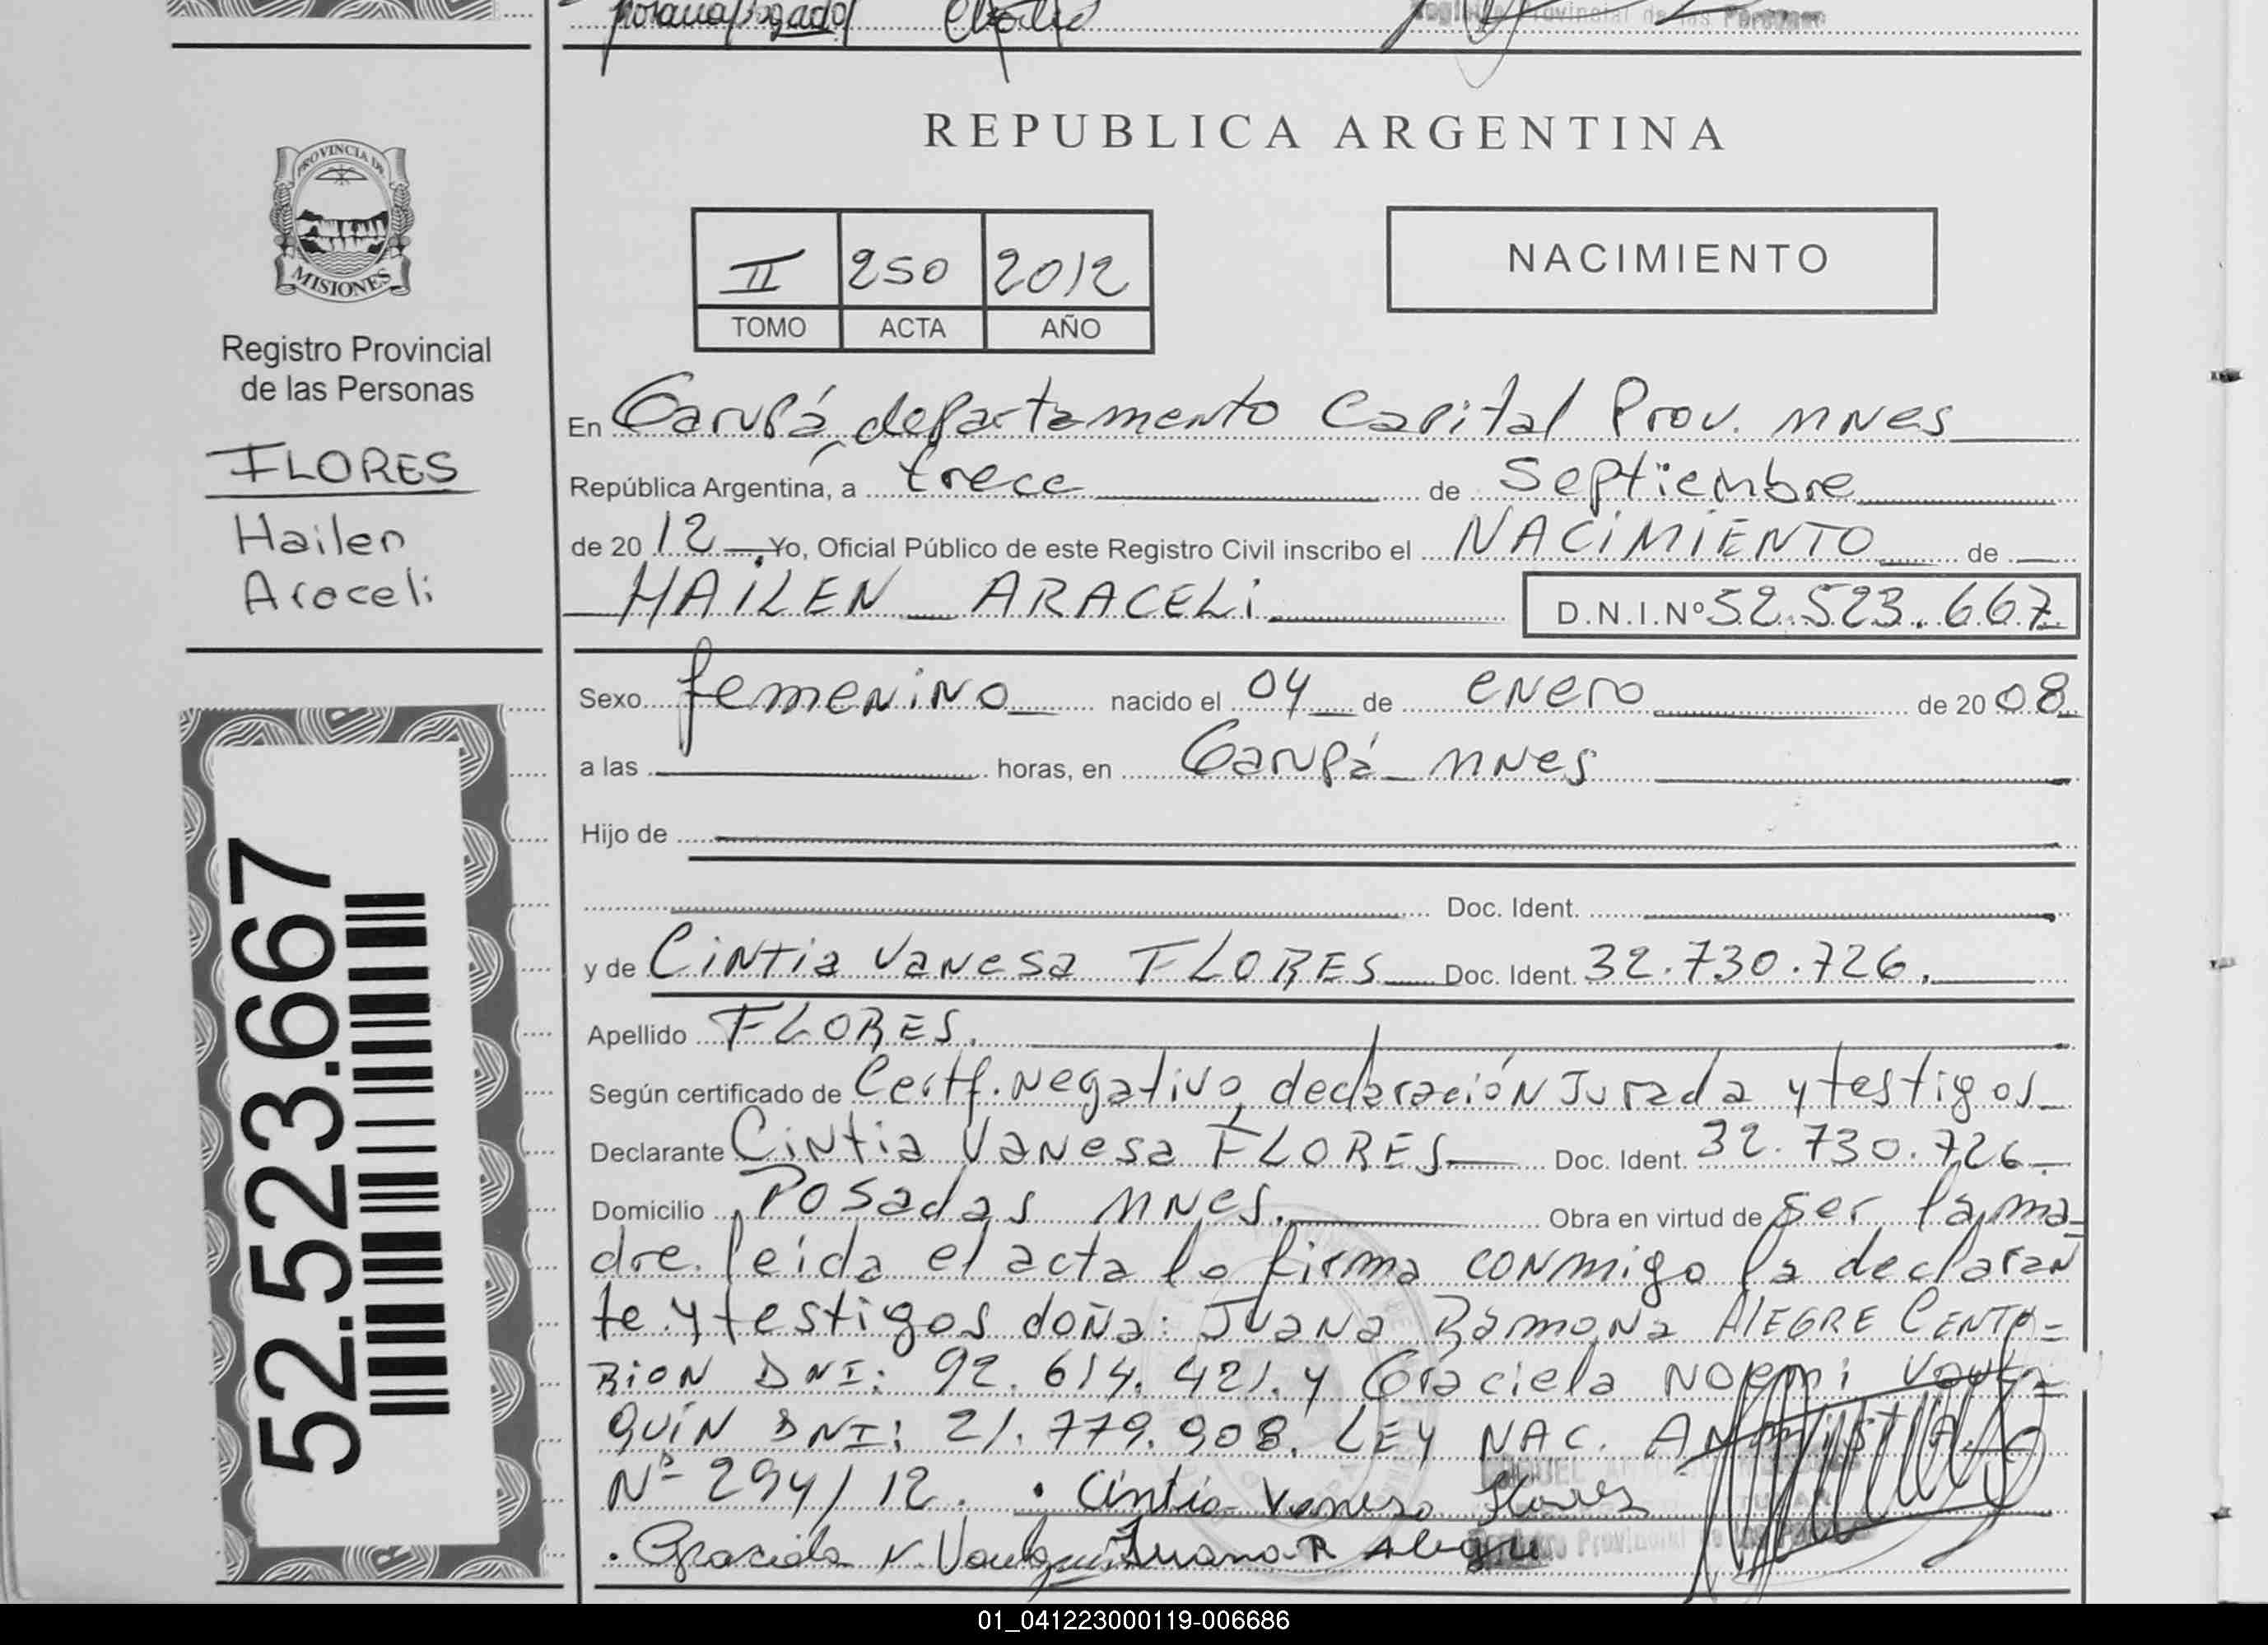 REPUBLICA ARGENTINA
PROVINCIA DE
MISIONES
Registro Provincial
de las Personas
FLORES
Hailen
Araceli
52.523.667
II 250 2012
TOMO ACTA AÑO
NACIMIENTO
En Garupá, departamento Capital Prov. Mnes
República Argentina, a trece de Septiembre
de 20 12 Yo, Oficial Público de este Registro Civil inscribo el NACIMIENTO de
HAILEN ARACELI D.N.I.Nº 52.523.667
Sexo femenino nacido el 04 de enero de 20 08
a las horas, en Garupá Mnes
Hijo de
Doc. Ident.
y de Cintia Vanesa FLORES Doc. Ident. 32.730.726.
Apellido FLORES.
Según certificado de Certf. Negativo, declaración Jurada y testigos
Declarante Cintia Vanesa FLORES Doc. Ident. 32.730.726.
Domicilio Posadas Mnes. Obra en virtud de ser la ma
dre. leida el acta la firma conmigo la declaran
te y testigos doña: Juana Ramona ALEGRE CENTU=
RION DNI: 92.614.421. y Graciela Noemi Vauta=
QUIN DNI: 21.779.908. LEY NAC.
Nº 294/12. Cintia Vanesa Flores
Graciela N. Juana R Alegre
01_041223000119-006686